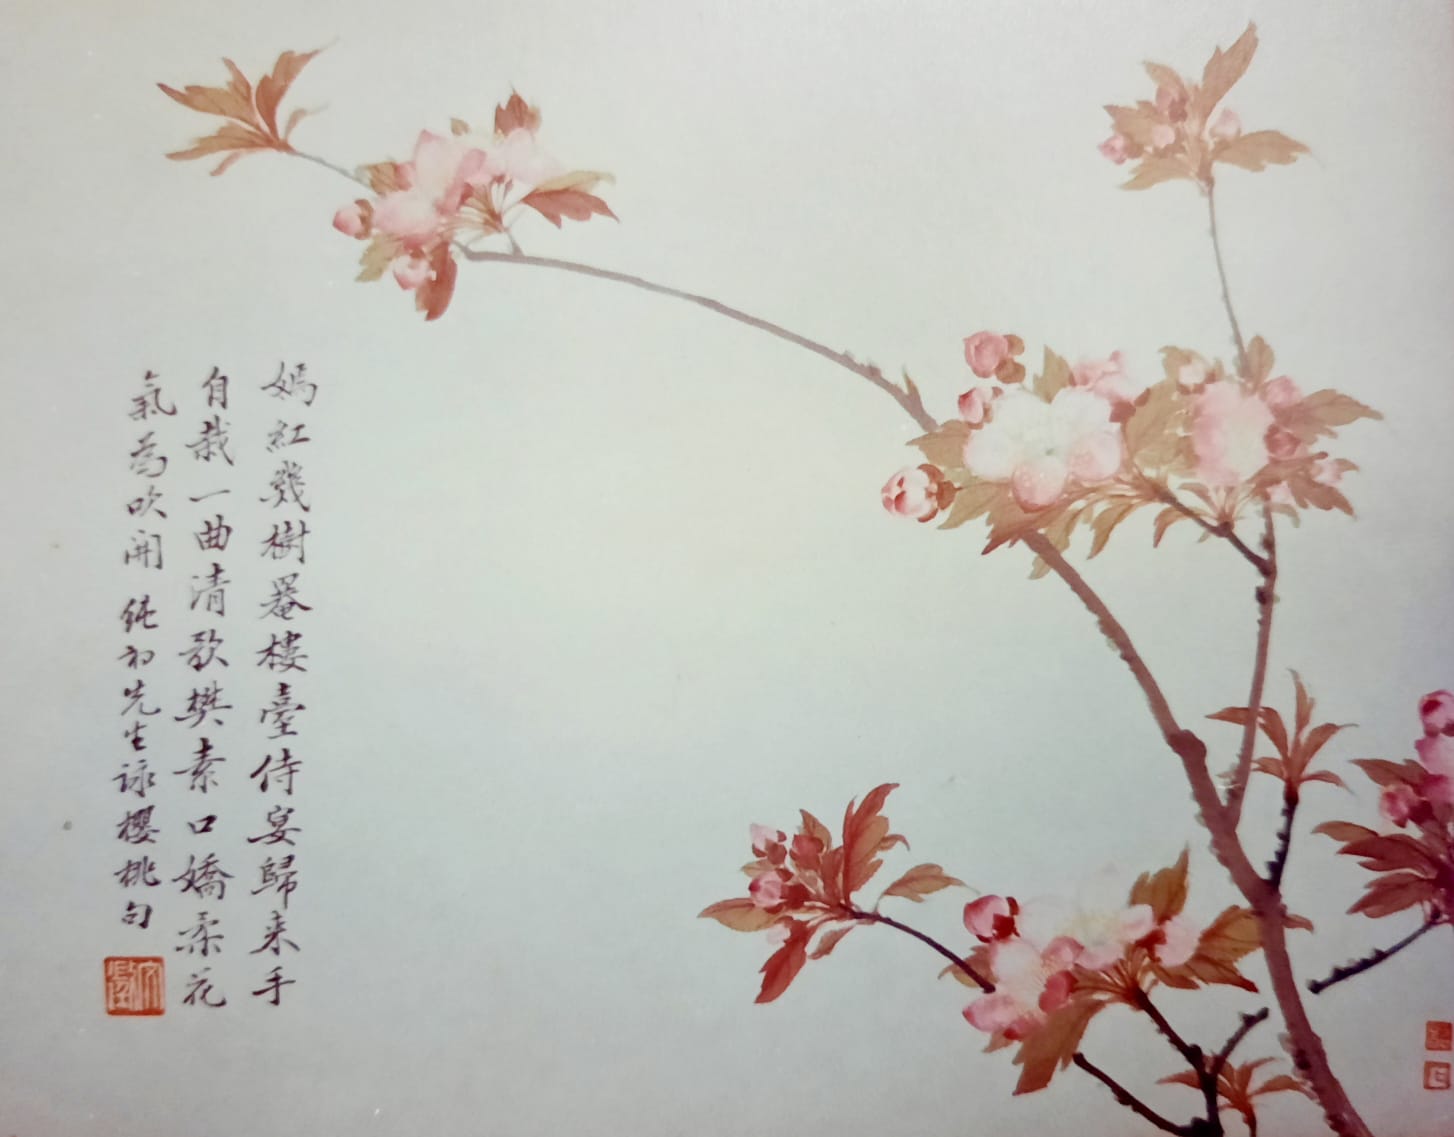 嫣紅幾樹罨樓臺侍宴歸来手
自栽一曲清歌樊素口嬌柔花
氣為吹開 純初先生詠櫻桃句